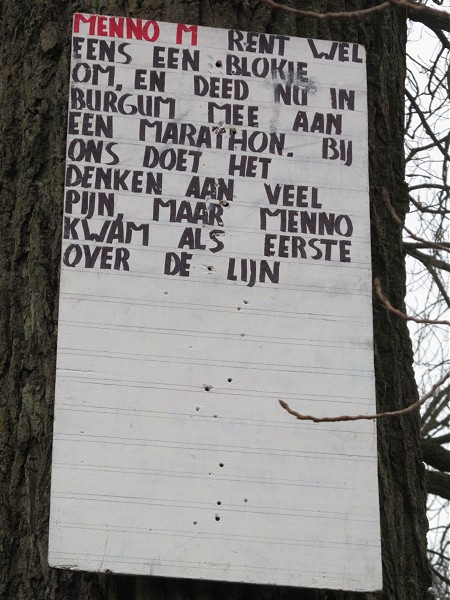 MENNO M RENT WEL
EENS EEN BLOKJE
OM, EN DEED NU IN
BURGUM MEE AAN
EEN MARATHON. BIJ
ONS DOET HET
DENKEN AAN VEEL
PIJN, MAAR MENNO
KWAM ALS EERSTE
OVER DE LIJN